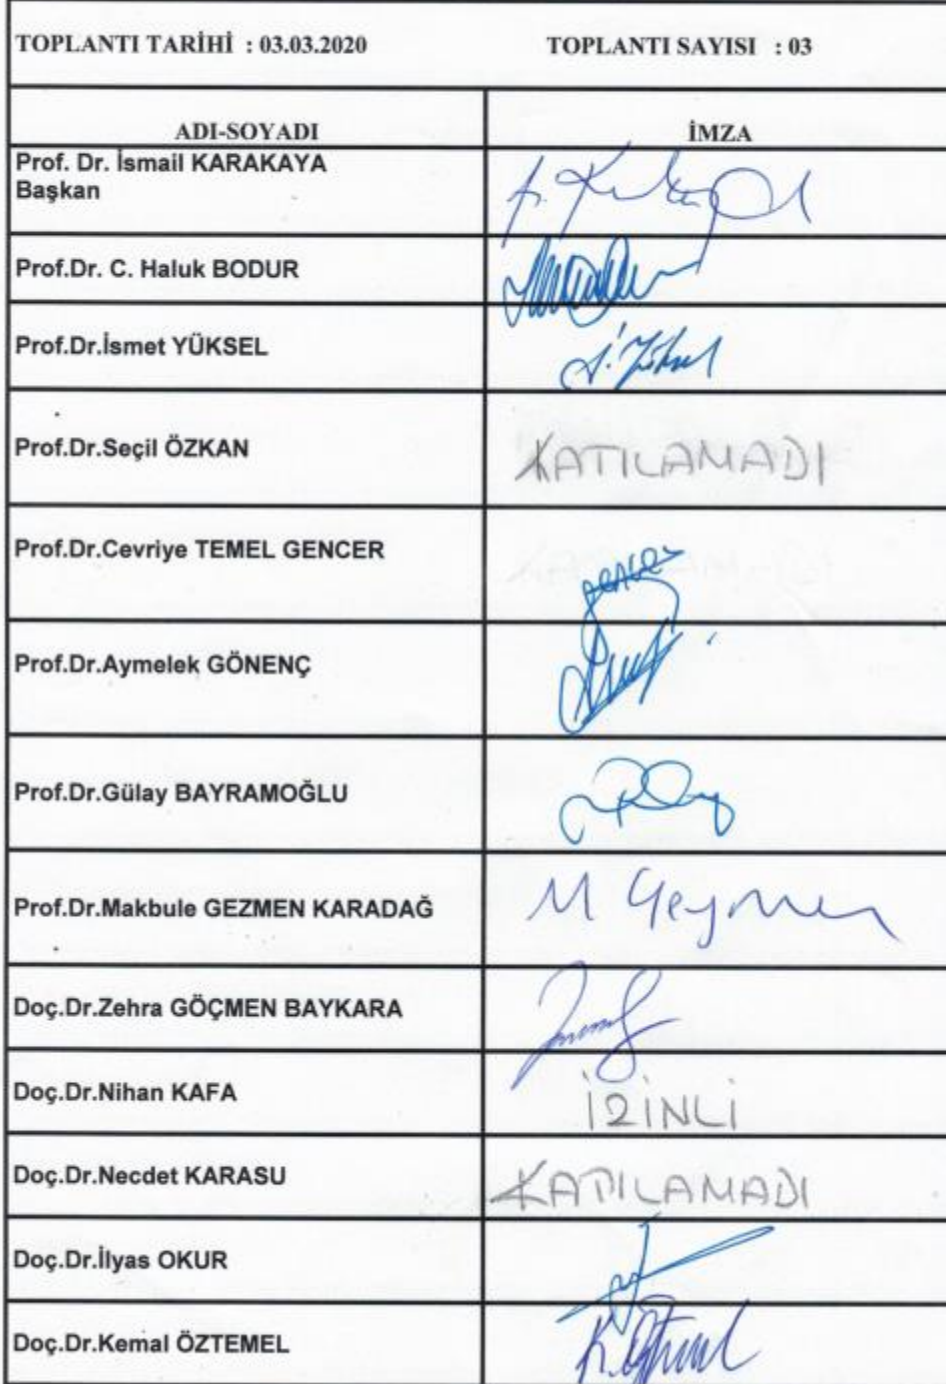 TOPLANTI TARİHİ : 03.03.2020 TOPLANTI SAYISI : 03
ADI-SOYADI İMZA
Prof. Dr. İsmail KARAKAYA
Başkan
Prof.Dr. C. Haluk BODUR
Prof.Dr.İsmet YÜKSEL
İ. Yüksel
Prof.Dr.Seçil ÖZKAN KATILAMADI
Prof.Dr.Cevriye TEMEL GENCER
Prof.Dr.Aymelek GÖNENÇ
Prof.Dr.Gülay BAYRAMOĞLU
Prof.Dr.Makbule GEZMEN KARADAĞ M Gezmen
Doç.Dr.Zehra GÖÇMEN BAYKARA
Doç.Dr.Nihan KAFA İZİNLİ
Doç.Dr.Necdet KARASU KATILAMADI
Doç.Dr.İlyas OKUR
Doç.Dr.Kemal ÖZTEMEL